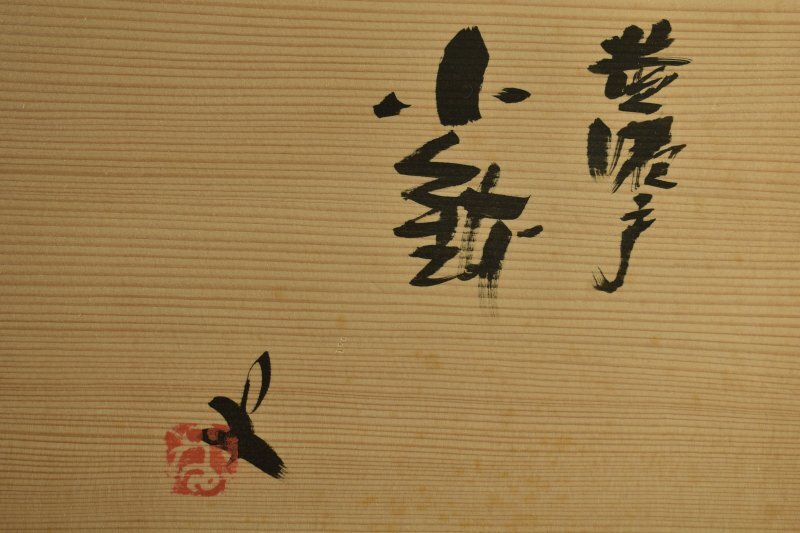 黄瀬戸
小鉢